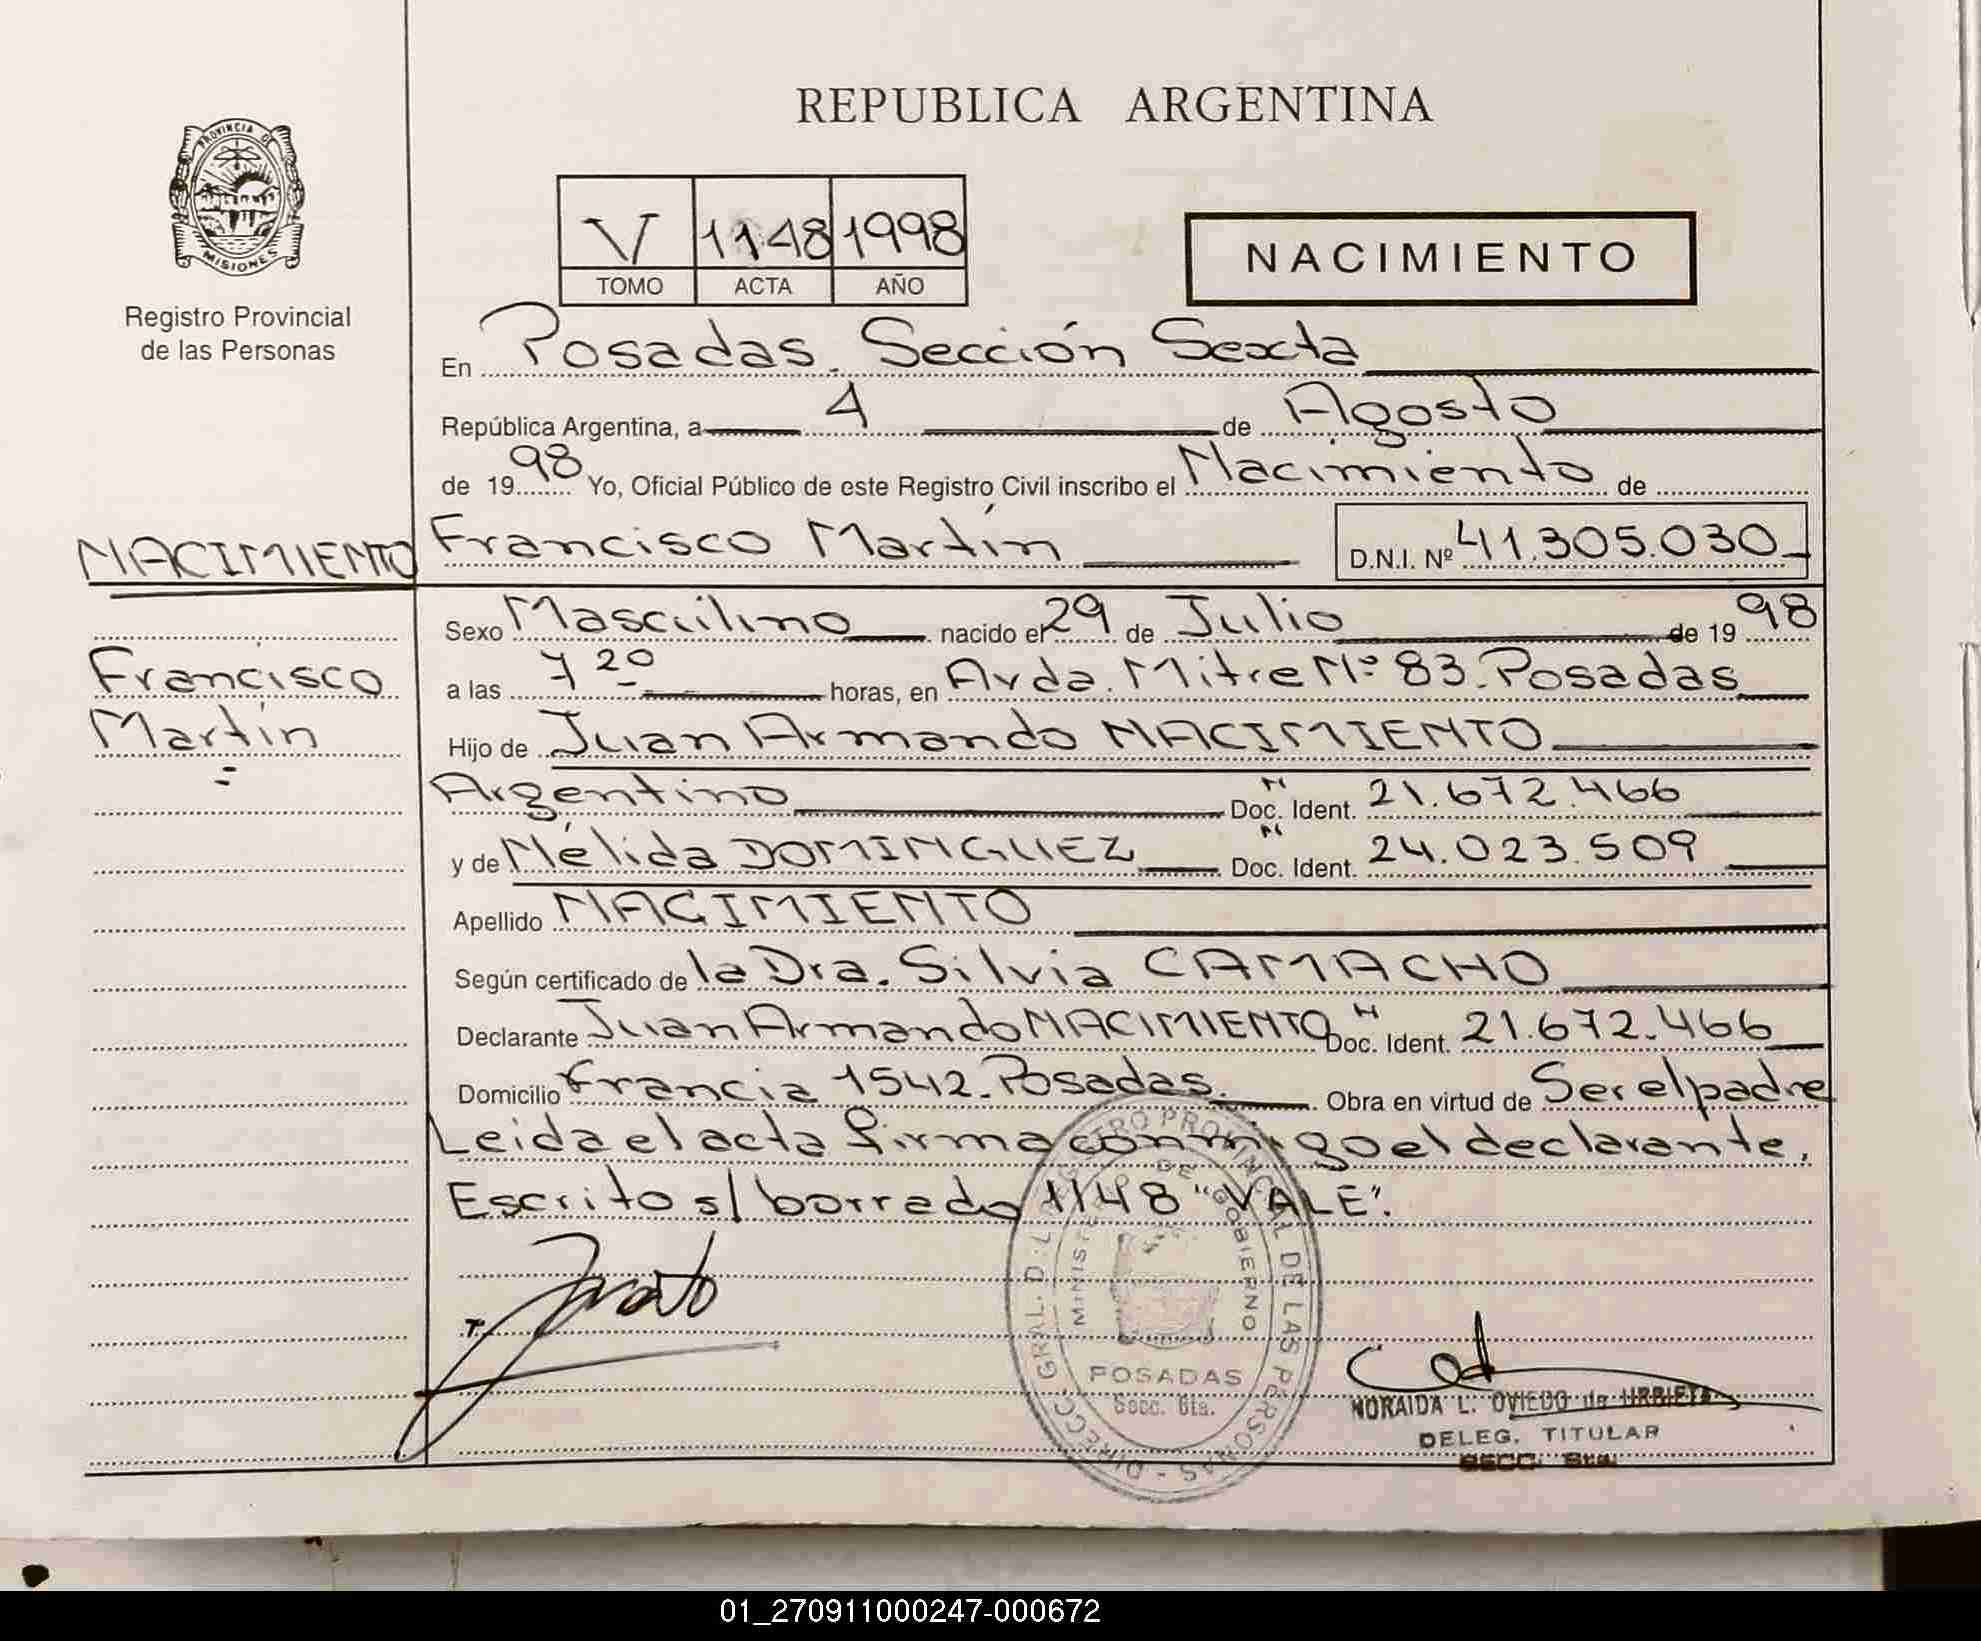 REPUBLICA ARGENTINA
PROVINCIA DE
MISIONES
Registro Provincial
de las Personas
V 1148 1998
TOMO ACTA AÑO
NACIMIENTO
En Posadas. Sección Sexta
República Argentina, a 4 de Agosto
de 1998 Yo, Oficial Público de este Registro Civil inscribo el Nacimiento de
Francisco Martín D.N.I. Nº 41.305.030
NACIMIENTO
Francisco
Martín
Sexo Masculino nacido el 29 de Julio de 1998
a las 7 20 horas, en Avda. Mitre Nº 83. Posadas
Hijo de Juan Armando NACIMIENTO
Argentino Doc. Ident. N 21.672.466
y de Nélida DOMINGUEZ Doc. Ident. N 24.023.509
Apellido NACIMIENTO
Según certificado de la Dra. Silvia CAMACHO
Declarante Juan Armando NACIMIENTO Doc. Ident. N 21.672.466
Domicilio Francia 1542. Posadas. Obra en virtud de Ser el padre
Leida el acta firma conmigo el declarante.
Escrito s/ borrado 1148 "VALE".
DIRECC. GRAL. DEL REGISTRO PROVINCIAL DE LAS PERSONAS
MINISTERIO DE GOBIERNO
POSADAS
Secc. 6ta.
NORAIDA L. OVIEDO de URBIETA
DELEG. TITULAR
SECC. 6ta.
01_270911000247-000672